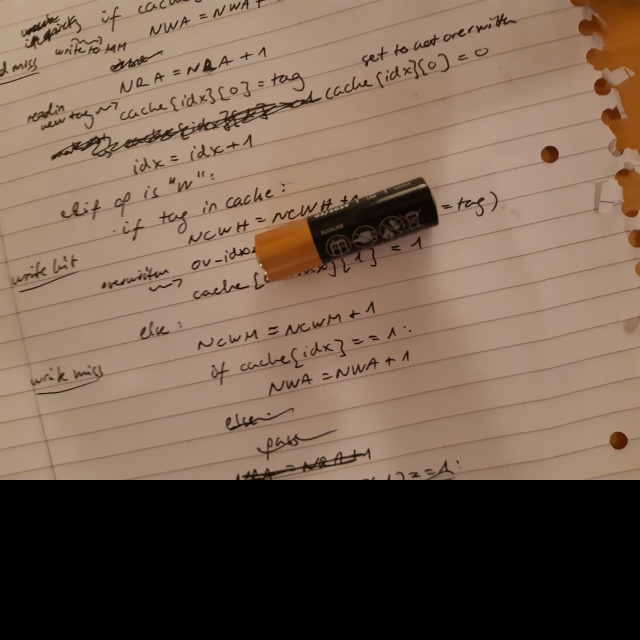 if cache
write to MM NWA = NWA +
d miss
NRA = NRA + 1
read in new tag → cache[idx][0] = tag
set to not overwritten
cache[idx][0] = 0
idx = idx + 1
elif op is "W":
if tag in cache:
NCWH = NCWH +
write hit
= tag)
cache[ ][1] = 1
else:
NCWM = NCWM + 1
write miss
if cache[idx] == 1:
NWA = NWA + 1
else:
pass
NRA = NRA + 1
== 1:
ALKALINE